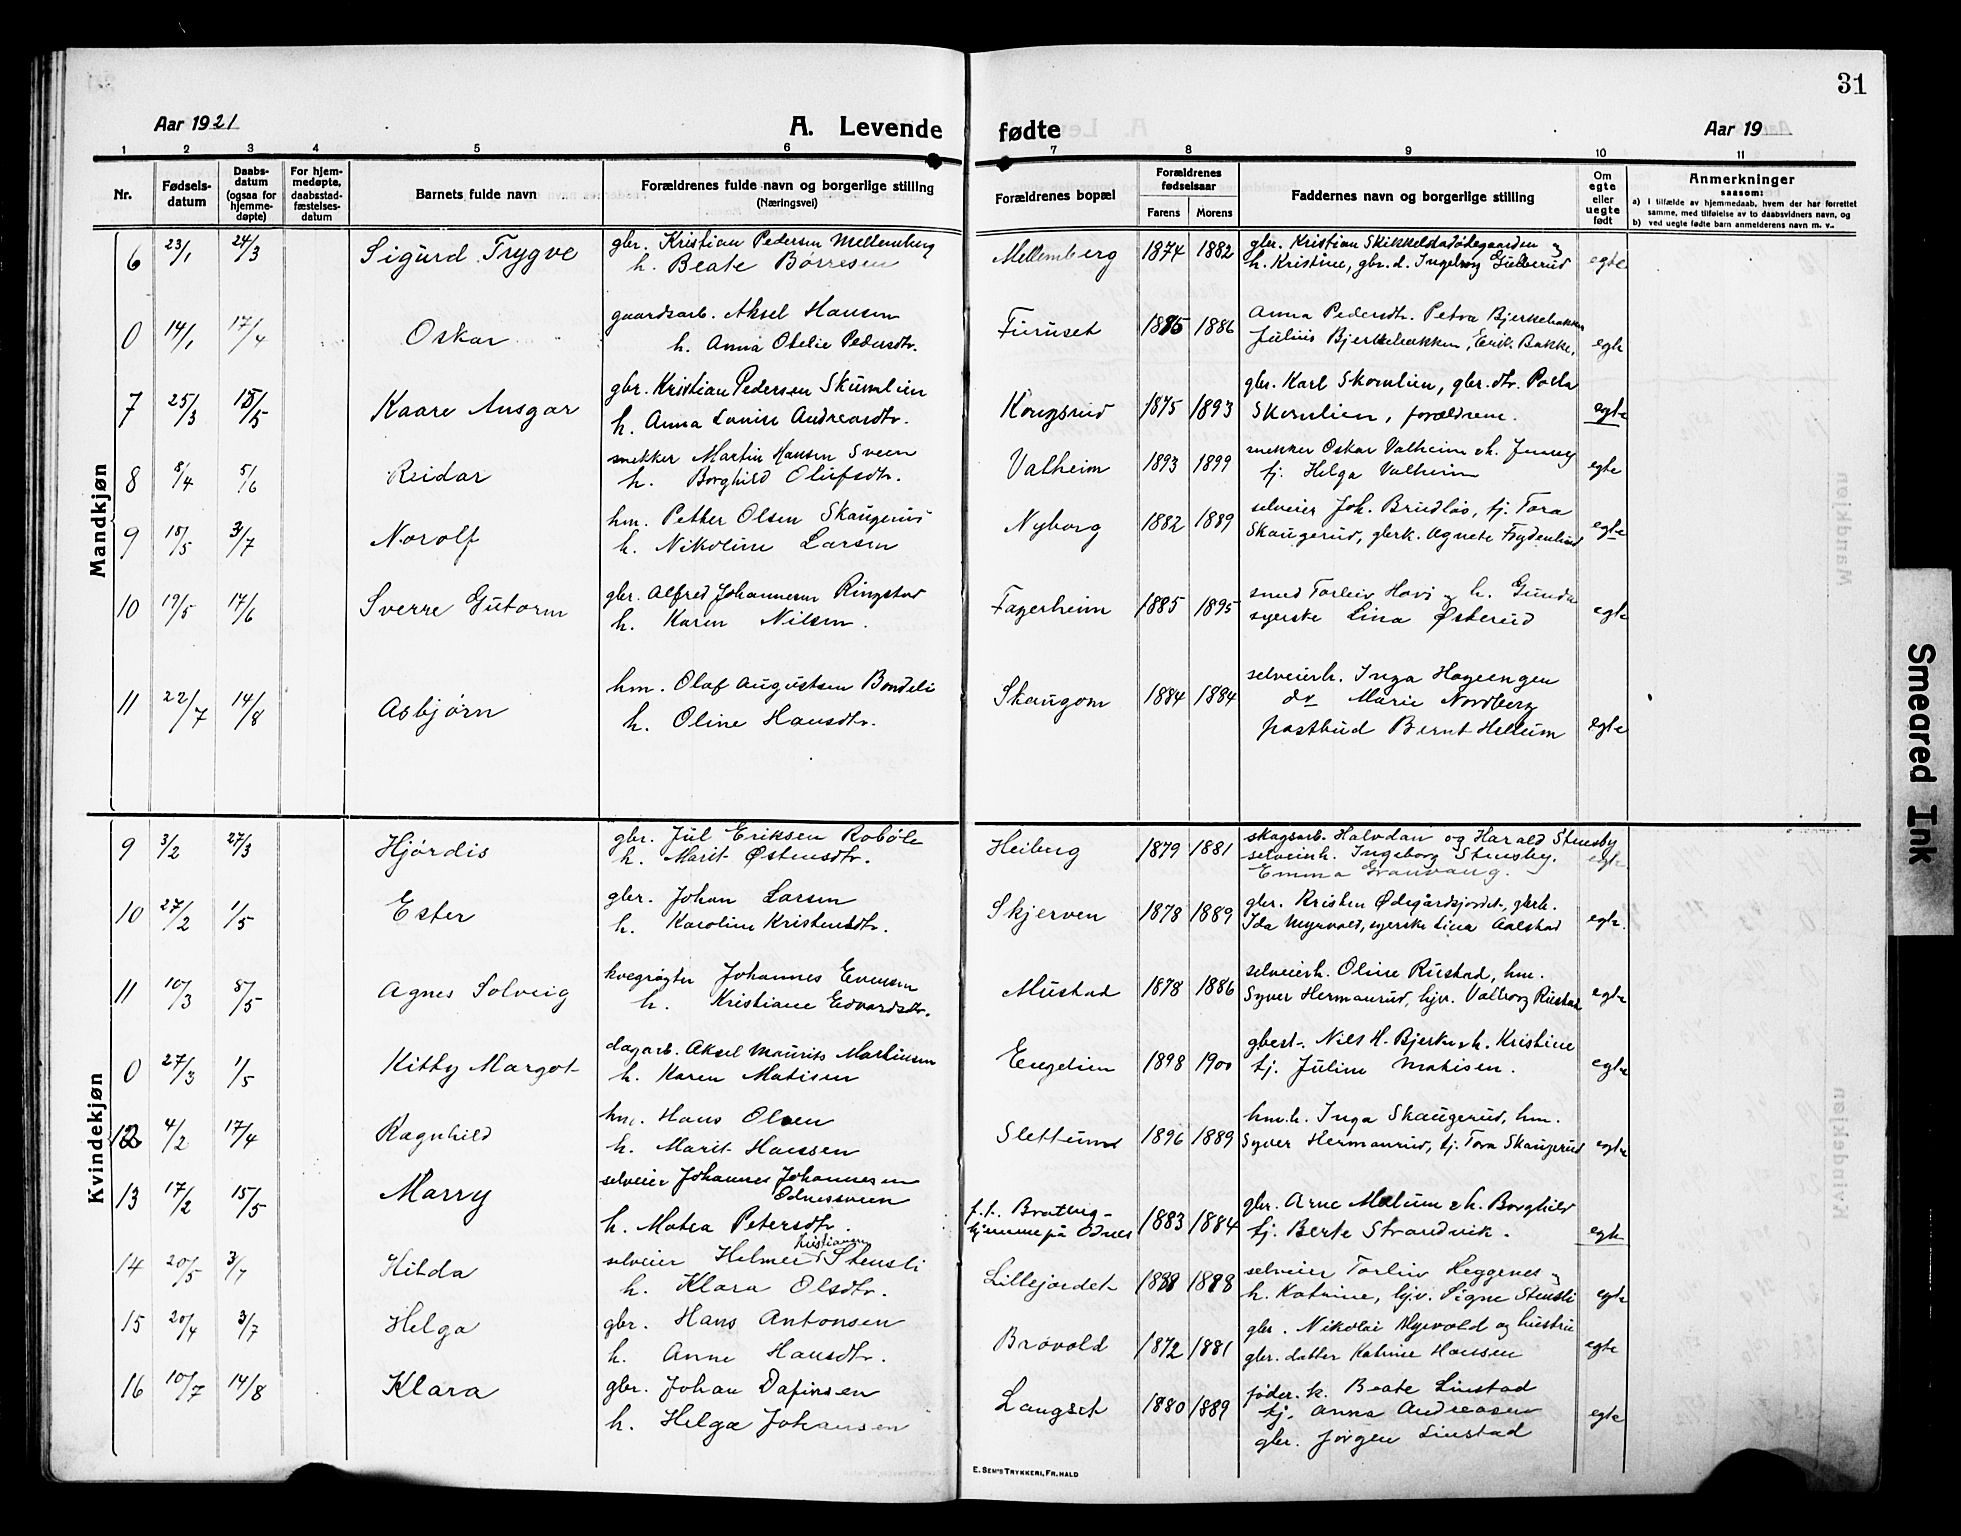 31
Aar 1921
A. Levende
fødte
Aar 19
1 2 3 4 5 6 7 8 9 10 11
Nr.
Fødsels-
datum
Daabs-
datum
(ogsaa for
hjemme-
døpte)
For hjem-
medøpte,
daabsstad-
fæstelses-
datum
Barnets fulde navn
Forældrenes fulde navn og borgerlige stilling
(Næringsvei)
Forældrenes bopæl
Forældrenes
fødselsaar
Farens Morens
Faddernes navn og borgerlige stilling
Om
egte
eller
uegte
født
Anmerkninger
saasom:
a) I tilfælde av hjemmedaab, hvem der har forrettet
samme, med tilføielse av to daabsvidners navn, og
b) ved uegte fødte barn anmelderens navn m. v..
Mandkjøn
6 23/1 24/3 Sigurd Trygve gbr. Kristian Pedersen Mellemberg
h. Beate Børresen
Mellemberg 1874 1882 gbr. Kristian Skikkelstadødegaarden og
h. Kristine, gbr. d. Ingeborg Gulberud egte
0 14/1 17/4 Oskar gaardsarb. Aksel Hansen
h. Anna Otelie Pedersdtr.
Furuset 1885 1886 Anna Pedersdtr. Petra Bjerkebakken
Julius Bjerkebakken, Erik Bakke, egte
7 25/3 15/5 Kaare Ansgar gbr. Kristian Pedersen Skumlien
h. Anna Lovise Andreasdtr.
Kongsrud 1875 1893 gbr. Karl Skomlien, gbr. dtr. Paula
Skumlien, forældrene. egte
8 8/4 5/6 Reidar snekker Martin Hansen Sveen
h. Borghild Olufsdtr.
Valheim 1893 1899 snekker Oskar Valheim & h. Jenny
tj. Helga Valheim egte
9 18/5 3/7 Norolf hm. Petter Olsen Skaugerud
h. Nikoline Larsen
Nyborg 1882 1889 selveier Joh. Brudlås, tj. Tora
Skaugerud, gbrk. Agnete Frydenlund egte
10 19/5 17/6 Sverre Gutorm gbr. Alfred Johannesen Ringstad
h. Karen Nilsen.
Fagerheim 1885 1895 smed Torleiv Hovi og h. Gunda
syerske Lina Østerud egte
11 22/7 14/8 Asbjørn hm. Olaf Augustsen Bondeli
h. Oline Hansdtr.
Skaugom 1884 1884 selveierh. Inga Hageengen
do Marie Nordberg
postbud Bernt Hellum egte
Kvindekjøn
9 3/2 27/3 Hjørdis gbr. Jul Eriksen Robøle
h. Marit Østensdtr.
Heiberg 1879 1881 skogsarb. Halvdan og Harald Stensby
selveierh. Ingeborg Stensby.
Emma Granvang. egte
10 27/2 1/5 Ester gbr. Johan Larsen
h. Karoline Kristensdtr.
Skjerven 1878 1889 gbr. Kristen Ødegårdsjordet, gbrh.
Ida Myrvold, syerske Lina Aalstad egte.
11 10/3 8/5 Agnes Solveig kvegrøgter Johannes Evensen
h. Kristiane Edvardsdtr.
Mustad 1878 1886 selveierh. Oline Rustad, hm.
Syver Hermanrud, hjv. Valborg Rustad egte
0 27/3 1/5 Kitty Margot dagarb. Aksel Maurits Martinsen
h. Karen Matisen
Engelien 1898 1900 gbest. Nils H. Bjerke & h. Kristine
tj. Juline Matisen. egte
12 4/2 17/4 Ragnhild hm. Hans Olsen
h. Marit Hanssen
Slettum 1896 1889 hm.h. Inga Skaugerud, hm.
Syver Hermanrud, tj. Tora Skaugerud egte
13 17/2 15/5 Marry selveier Johannes Johannesen
Odnessveen
h. Matea Petersdtr.
f.t. Bratlug-
hjemme på Odnes 1883 1884 gbr. Arne Mælum & h. Borghild
tj. Berte Strandvik. egte
14 20/5 3/7 Hilda selveier Helmer Kristiansen Stensli
h. Klara Olsdtr.
Lillejordet 1888 1888 selveier Torleiv Heggenes og
h. Katrine, hjv. Signe Stensli egte
15 20/4 3/7 Helga gbr. Hans Antonsen
h. Anne Hansdtr.
Brovold 1872 1881 gbr. Nikolai Myrvold og hustru
gbr. datter Katrine Hanssen egte
16 10/7 14/8 Klara gbr. Johan Dafinsen
h. Helga Johansen
Langset 1880 1889 føder. k. Beate Linstad
tj. Anna Andreasen
gbr. Jørgen Linstad egte
E. Sem's Trykkeri, Fr.hald
Smeared Ink